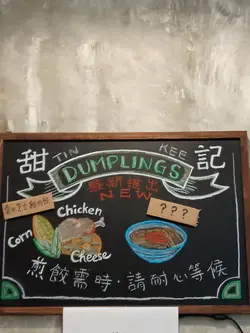 甜 TIN KEE 記
DUMPLINGS
最新推出
NEW
粟米芝士雞肉餃
? ? ?
Chicken
Corn
Cheese
煎餃需時，請耐心等候